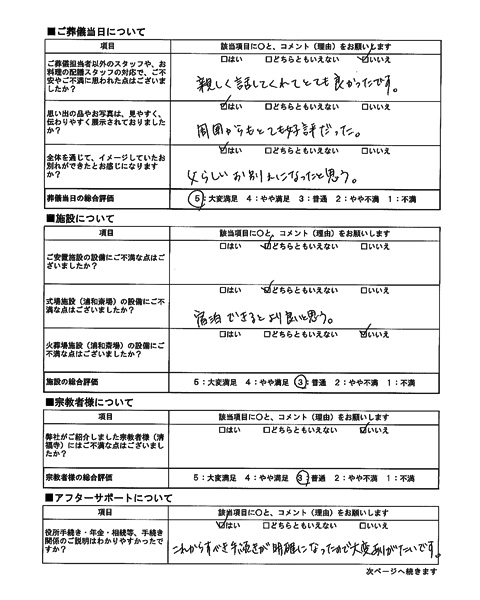 ■ご葬儀当日について
項目 該当項目に○と、コメント（理由）をお願いします
ご葬儀担当者以外のスタッフや、お料理の配膳スタッフの対応で、ご不安やご不満に思われた点はございましたか？
□はい □どちらともいえない ☑いいえ
親しく話してくれてとても良かったです。
思い出の品やお写真は、見やすく、伝わりやすく展示されておりましたか？
☑はい □どちらともいえない □いいえ
周囲からもとても好評だった。
全体を通じて、イメージしていたお別れができたとお感じになりますか？
☑はい □どちらともいえない □いいえ
父らしいお別れになったと思う。
葬儀当日の総合評価 5：大変満足 4：やや満足 3：普通 2：やや不満 1：不満
■施設について
項目 該当項目に○と、コメント（理由）をお願いします
ご安置施設の設備にご不満な点はございましたか？
□はい ☑どちらともいえない □いいえ
式場施設（浦和斎場）の設備にご不満な点はございましたか？
□はい ☑どちらともいえない □いいえ
宿泊できるとより良いと思う。
火葬場施設（浦和斎場）の設備にご不満な点はございましたか？
□はい □どちらともいえない ☑いいえ
施設の総合評価 5：大変満足 4：やや満足 3：普通 2：やや不満 1：不満
■宗教者様について
項目 該当項目に○と、コメント（理由）をお願いします
弊社がご紹介しました宗教者様（清福寺）にはご不満な点はございましたか？
□はい □どちらともいえない ☑いいえ
宗教者様の総合評価 5：大変満足 4：やや満足 3：普通 2：やや不満 1：不満
■アフターサポートについて
項目 該当項目に○と、コメント（理由）をお願いします
役所手続き・年金・相続等、手続き関係のご説明はわかりやすかったですか？
☑はい □どちらともいえない □いいえ
これからすべき手続きが明確になったので大変ありがたいです。
次ページへ続きます